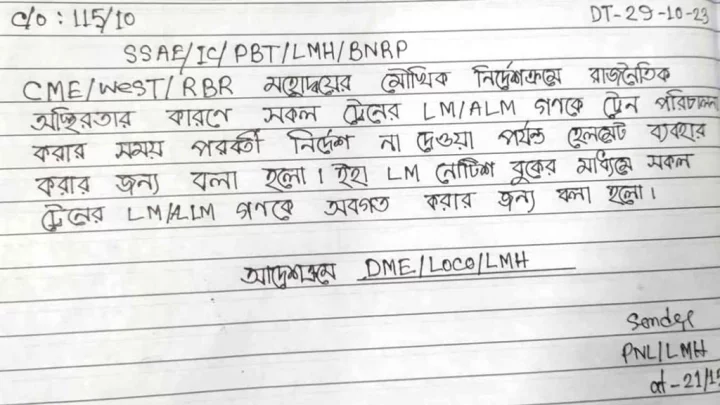 c/o : 115/10
DT-29-10-23
SSAE/IC/PBT/LMH/BNRP
CME/West/RBR মহোদয়ের মৌখিক নির্দেশক্রমে রাজনৈতিক
অস্থিরতার কারণে সকল ট্রেনের LM/ALM গণকে ট্রেন পরিচালনা
করার সময় পরবর্তী নির্দেশ না দেওয়া পর্যন্ত হেলমেট ব্যবহার
করার জন্য বলা হলো। ইহা LM নোটিশ বুকের মাধ্যমে সকল
ট্রেনের LM/ALM গণকে অবগত করার জন্য বলা হলো।
আদেশক্রমে DME/LOCO/LMH
PNL/LMH
at-21/15